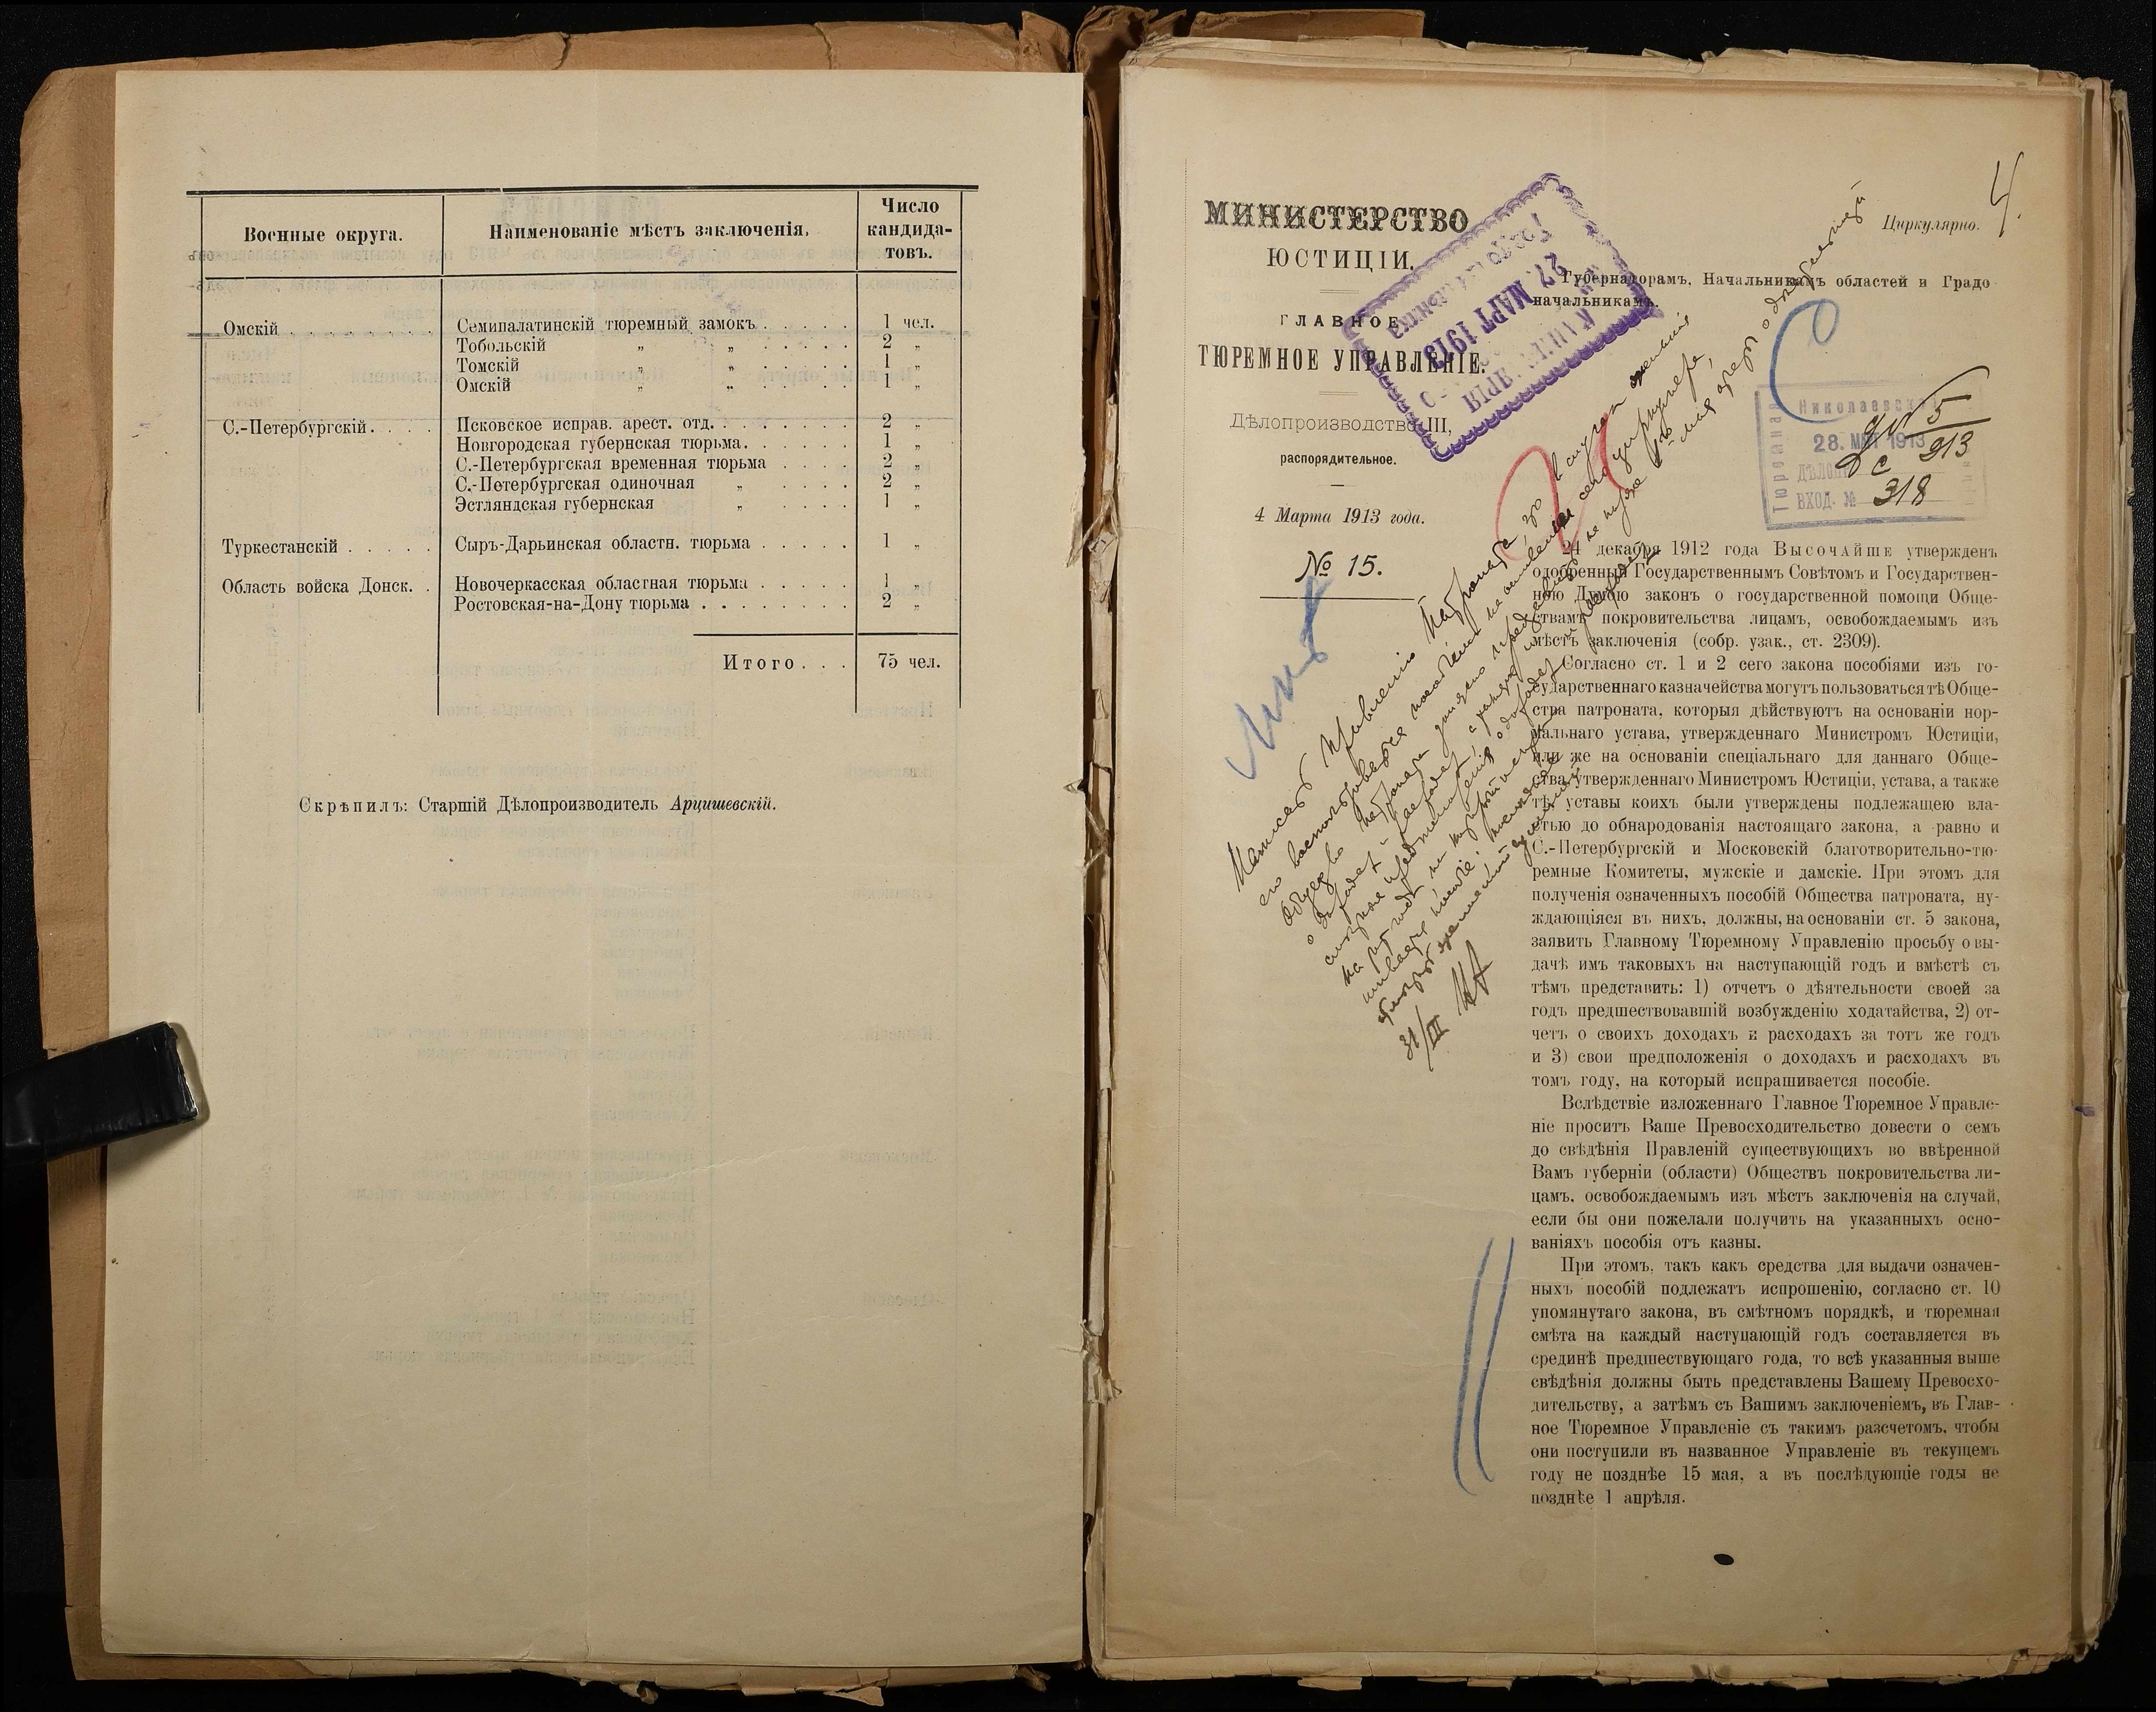 Военные округа.
Наименованіе мѣстъ заключенія.
Число
кандида-
товъ.
Омскій . . . . . . . . Семипалатинскій тюремный замокъ . . . . . 1 чел.
Тобольскій „ „ . . . . . 2 „
Томскій „ „ . . . . . 1 „
Омскій „ „ . . . . . 1 „
С.-Петербургскій. . . . Псковское исправ. арест. отд. . . . . . . . 2 „
Новгородская губернская тюрьма. . . . . . 1 „
С.-Петербургская временная тюрьма . . . . 2 „
С.-Петербургская одиночная „ . . . . 2 „
Эстляндская губернская „ . . . . 1 „
Туркестанскій . . . . . Сыръ-Дарьинская областн. тюрьма . . . . . 1 „
Область войска Донск. . Новочеркасская областная тюрьма . . . . . 1 „
Ростовская-на-Дону тюрьма . . . . . . . . 2 „
Итого. . . 75 чел.
Скрѣпилъ: Старшій Дѣлопроизводитель Арцишевскій.
4.
Циркулярно.
МИНИСТЕРСТВО
ЮСТИЦІИ.
ГЛАВНОЕ
ТЮРЕМНОЕ УПРАВЛЕНІЕ.
Дѣлопроизводство III,
распорядительное.
4 Марта 1913 года.
№ 15.
27. МАРТ 1913
Губернаторамъ, Начальникамъ областей и Градо
начальникамъ.
Николаевск
28. 1913
ВХОД. № 318
24 декабря 1912 года Высочайше утвержденъ
одобренный Государственнымъ Совѣтомъ и Государствен-
ною Думою законъ о государственной помощи Обще-
ствамъ покровительства лицамъ, освобождаемымъ изъ
мѣстъ заключенія (собр. узак., ст. 2309).
Согласно ст. 1 и 2 сего закона пособіями изъ го-
сударственнаго казначейства могутъ пользоваться тѣ Обще-
ства патроната, которыя дѣйствуютъ на основаніи нор-
мальнаго устава, утвержденнаго Министромъ Юстиціи,
или же на основаніи спеціальнаго для даннаго Обще-
ства утвержденнаго Министромъ Юстиціи, устава, а также
тѣ, уставы коихъ были утверждены подлежащею вла-
стью до обнародованія настоящаго закона, а равно и
С.-Петербургскій и Московскій благотворительно-тю-
ремные Комитеты, мужскіе и дамскіе. При этомъ для
полученія означенныхъ пособій Общества патроната, ну-
ждающіяся въ нихъ, должны, на основаніи ст. 5 закона,
заявить Главному Тюремному Управленію просьбу о вы-
дачѣ имъ таковыхъ на наступающій годъ и вмѣстѣ съ
тѣмъ представить: 1) отчетъ о дѣятельности своей за
годъ предшествовавшій возбужденію ходатайства, 2) от-
четъ о своихъ доходахъ и расходахъ за тотъ же годъ
и 3) свои предположенія о доходахъ и расходахъ въ
томъ году, на который испрашивается пособіе.
Вслѣдствіе изложеннаго Главное Тюремное Управле-
ніе проситъ Ваше Превосходительство довести о семъ
до свѣдѣнія Правленій существующихъ во ввѣренной
Вамъ губерніи (области) Обществъ покровительства ли-
цамъ, освобождаемымъ изъ мѣстъ заключенія на случай,
если бы они пожелали получить на указанныхъ осно-
ваніяхъ пособія отъ казны.
При этомъ, такъ какъ средства для выдачи означен-
ныхъ пособій подлежатъ испрошенію, согласно ст. 10
упомянутаго закона, въ смѣтномъ порядкѣ, и тюремная
смѣта на каждый наступающій годъ составляется въ
срединѣ предшествующаго года, то всѣ указанныя выше
свѣдѣнія должны быть представлены Вашему Превосхо-
дительству, а затѣмъ съ Вашимъ заключеніемъ, въ Глав-
ное Тюремное Управленіе съ такимъ разсчетомъ, чтобы
они поступили въ названное Управленіе въ текущемъ
году не позднѣе 15 мая, а въ послѣдующіе годы не
позднѣе 1 апрѣля.
31/III